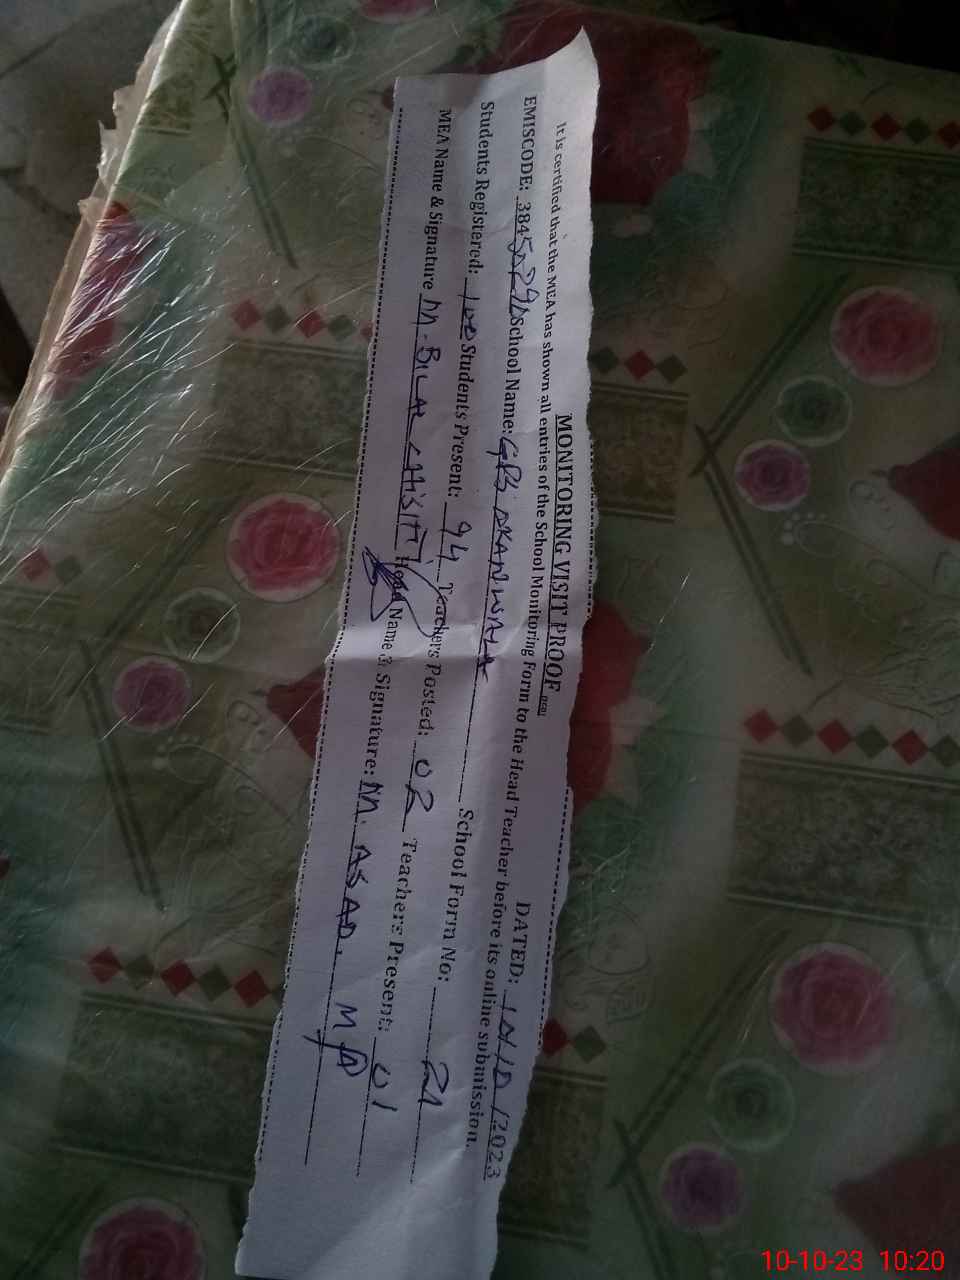 MONITORING VISIT PROOF
DATED: 10/10/2023
It is certified that the MEA has shown all entries of the School Monitoring Form to the Head Teacher before its online submission.
EMISCODE: School Name: GPS School Form No:
Students Registered: 100 Students Present: 94 Teachers Posted: 02 Teachers Present: 01
MEA Name & Signature M. BILAL CHISHTI Head Name & Signature: M. ASAD.
10-10-23 10:20